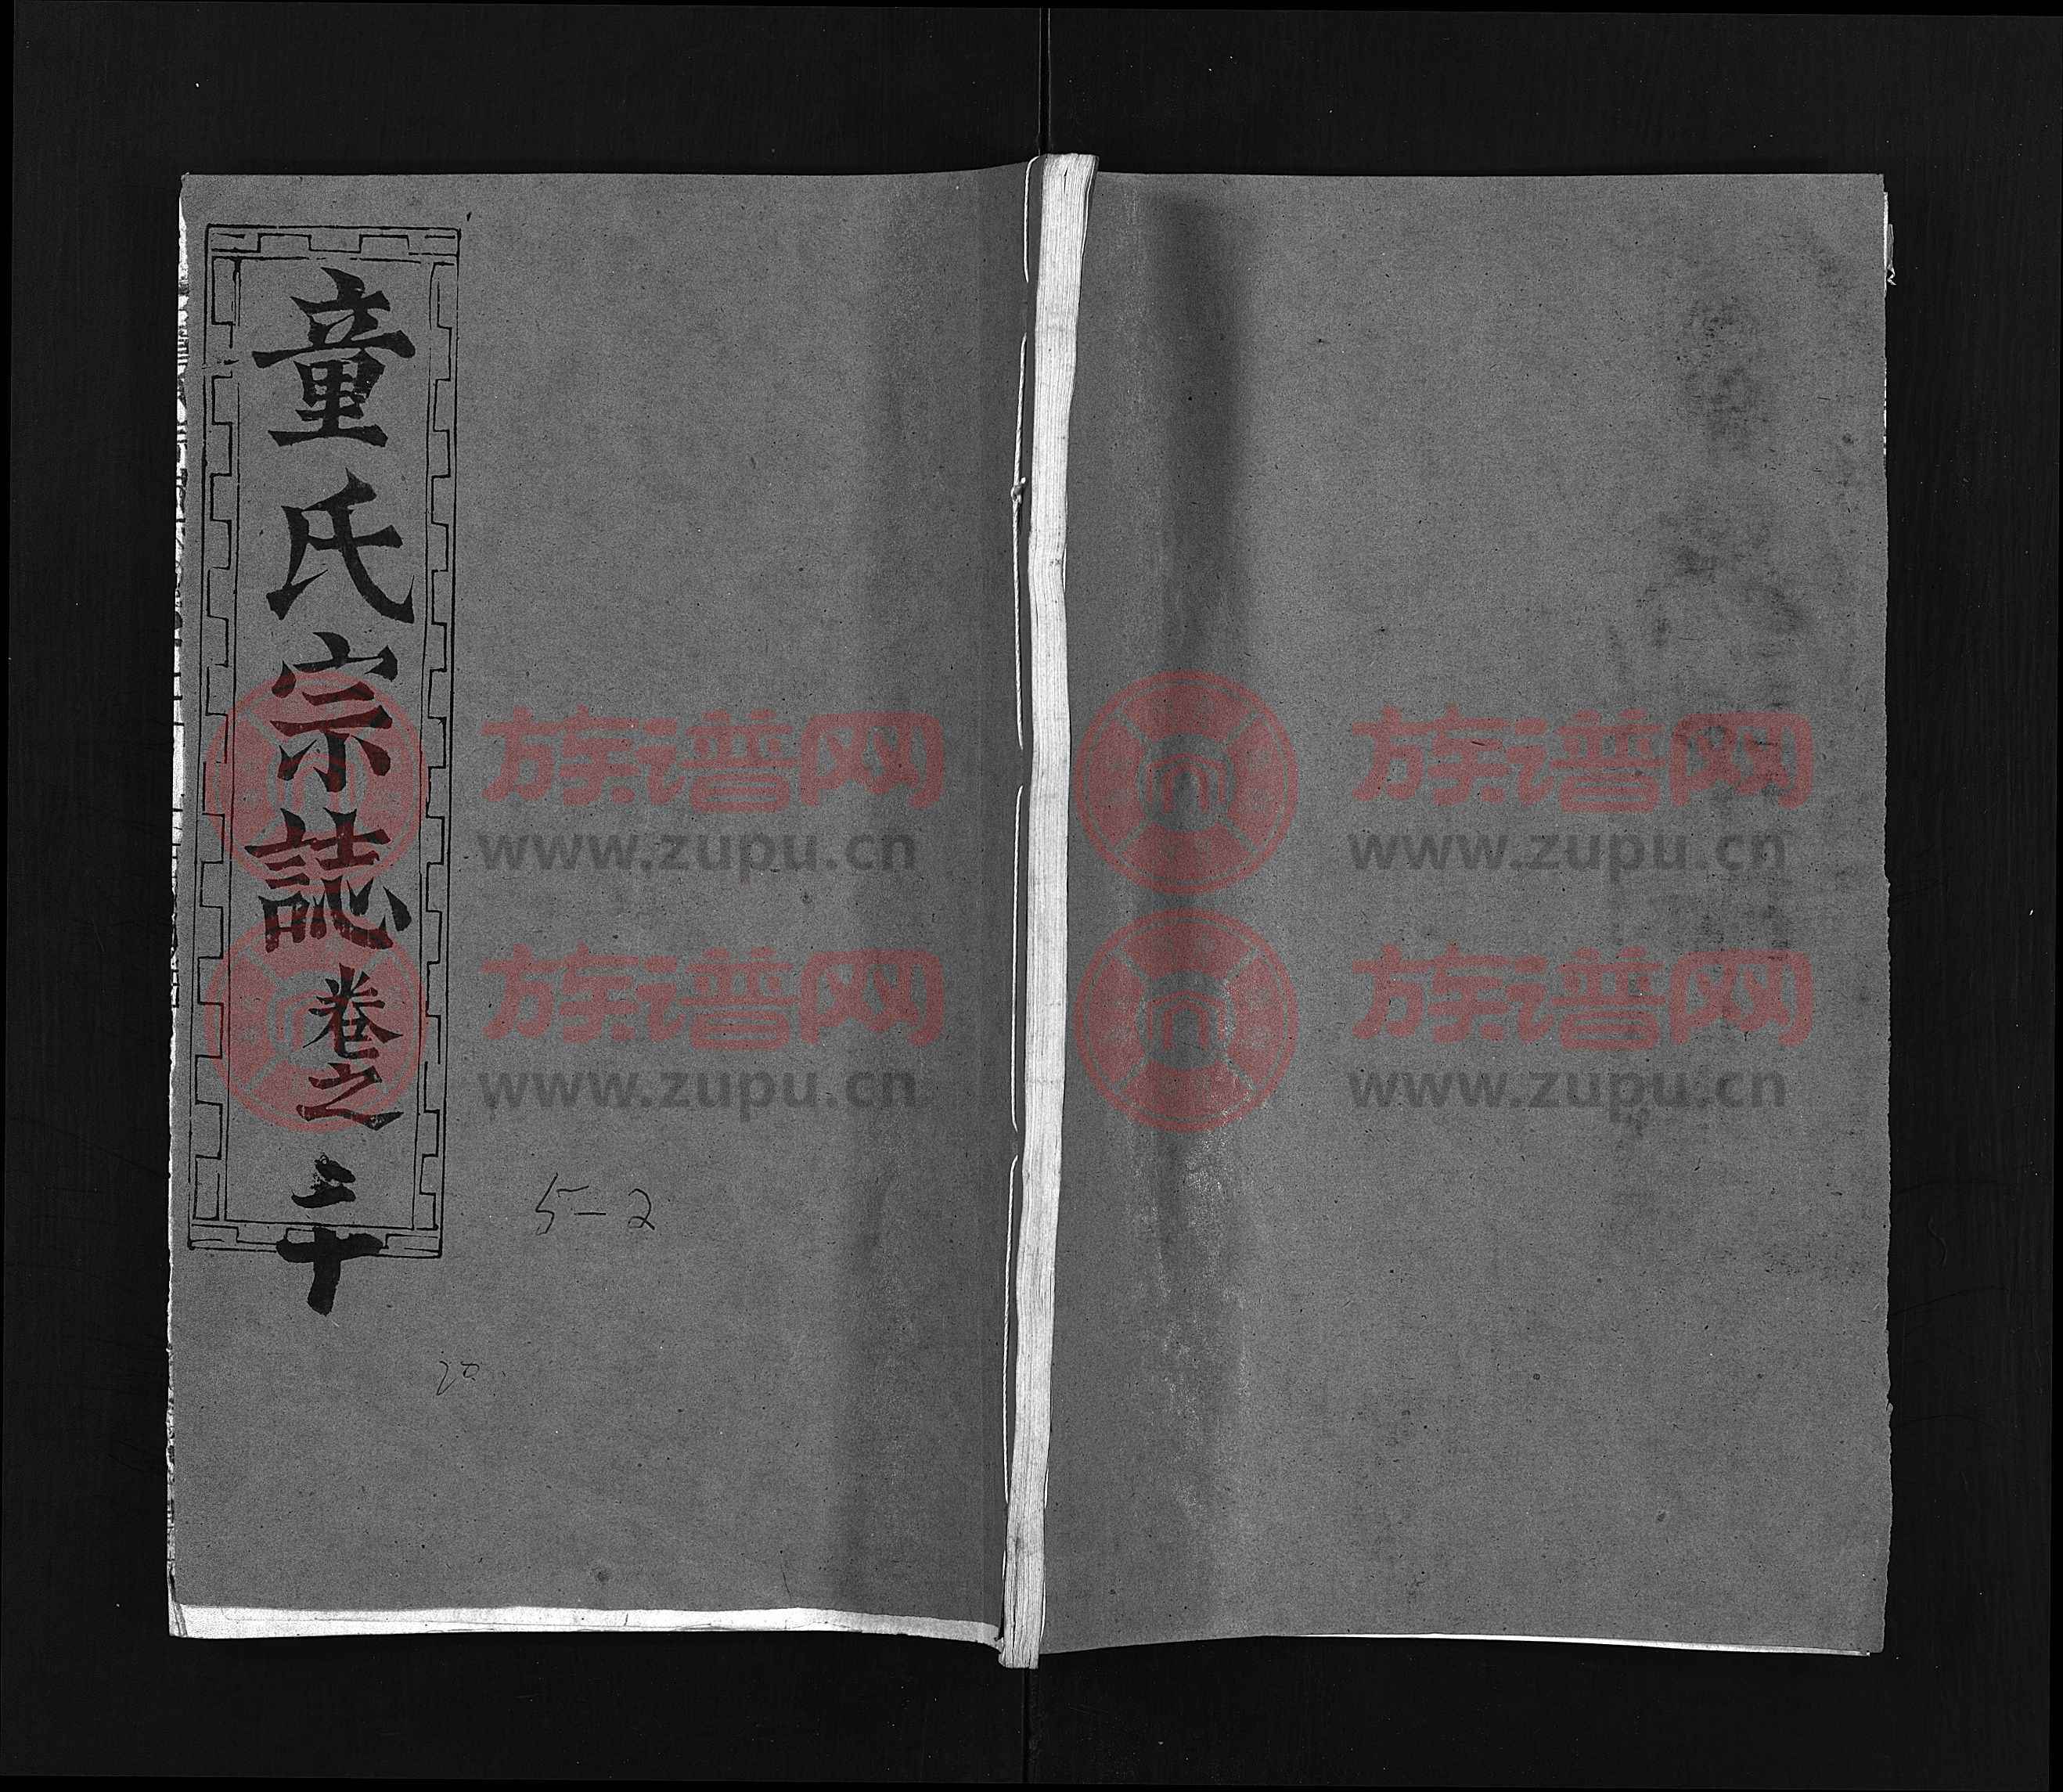 童氏宗誌卷之二十
5-2
20
族谱网
www.zupu.cn
族谱网
www.zupu.cn
族谱网
www.zupu.cn
族谱网
www.zupu.cn